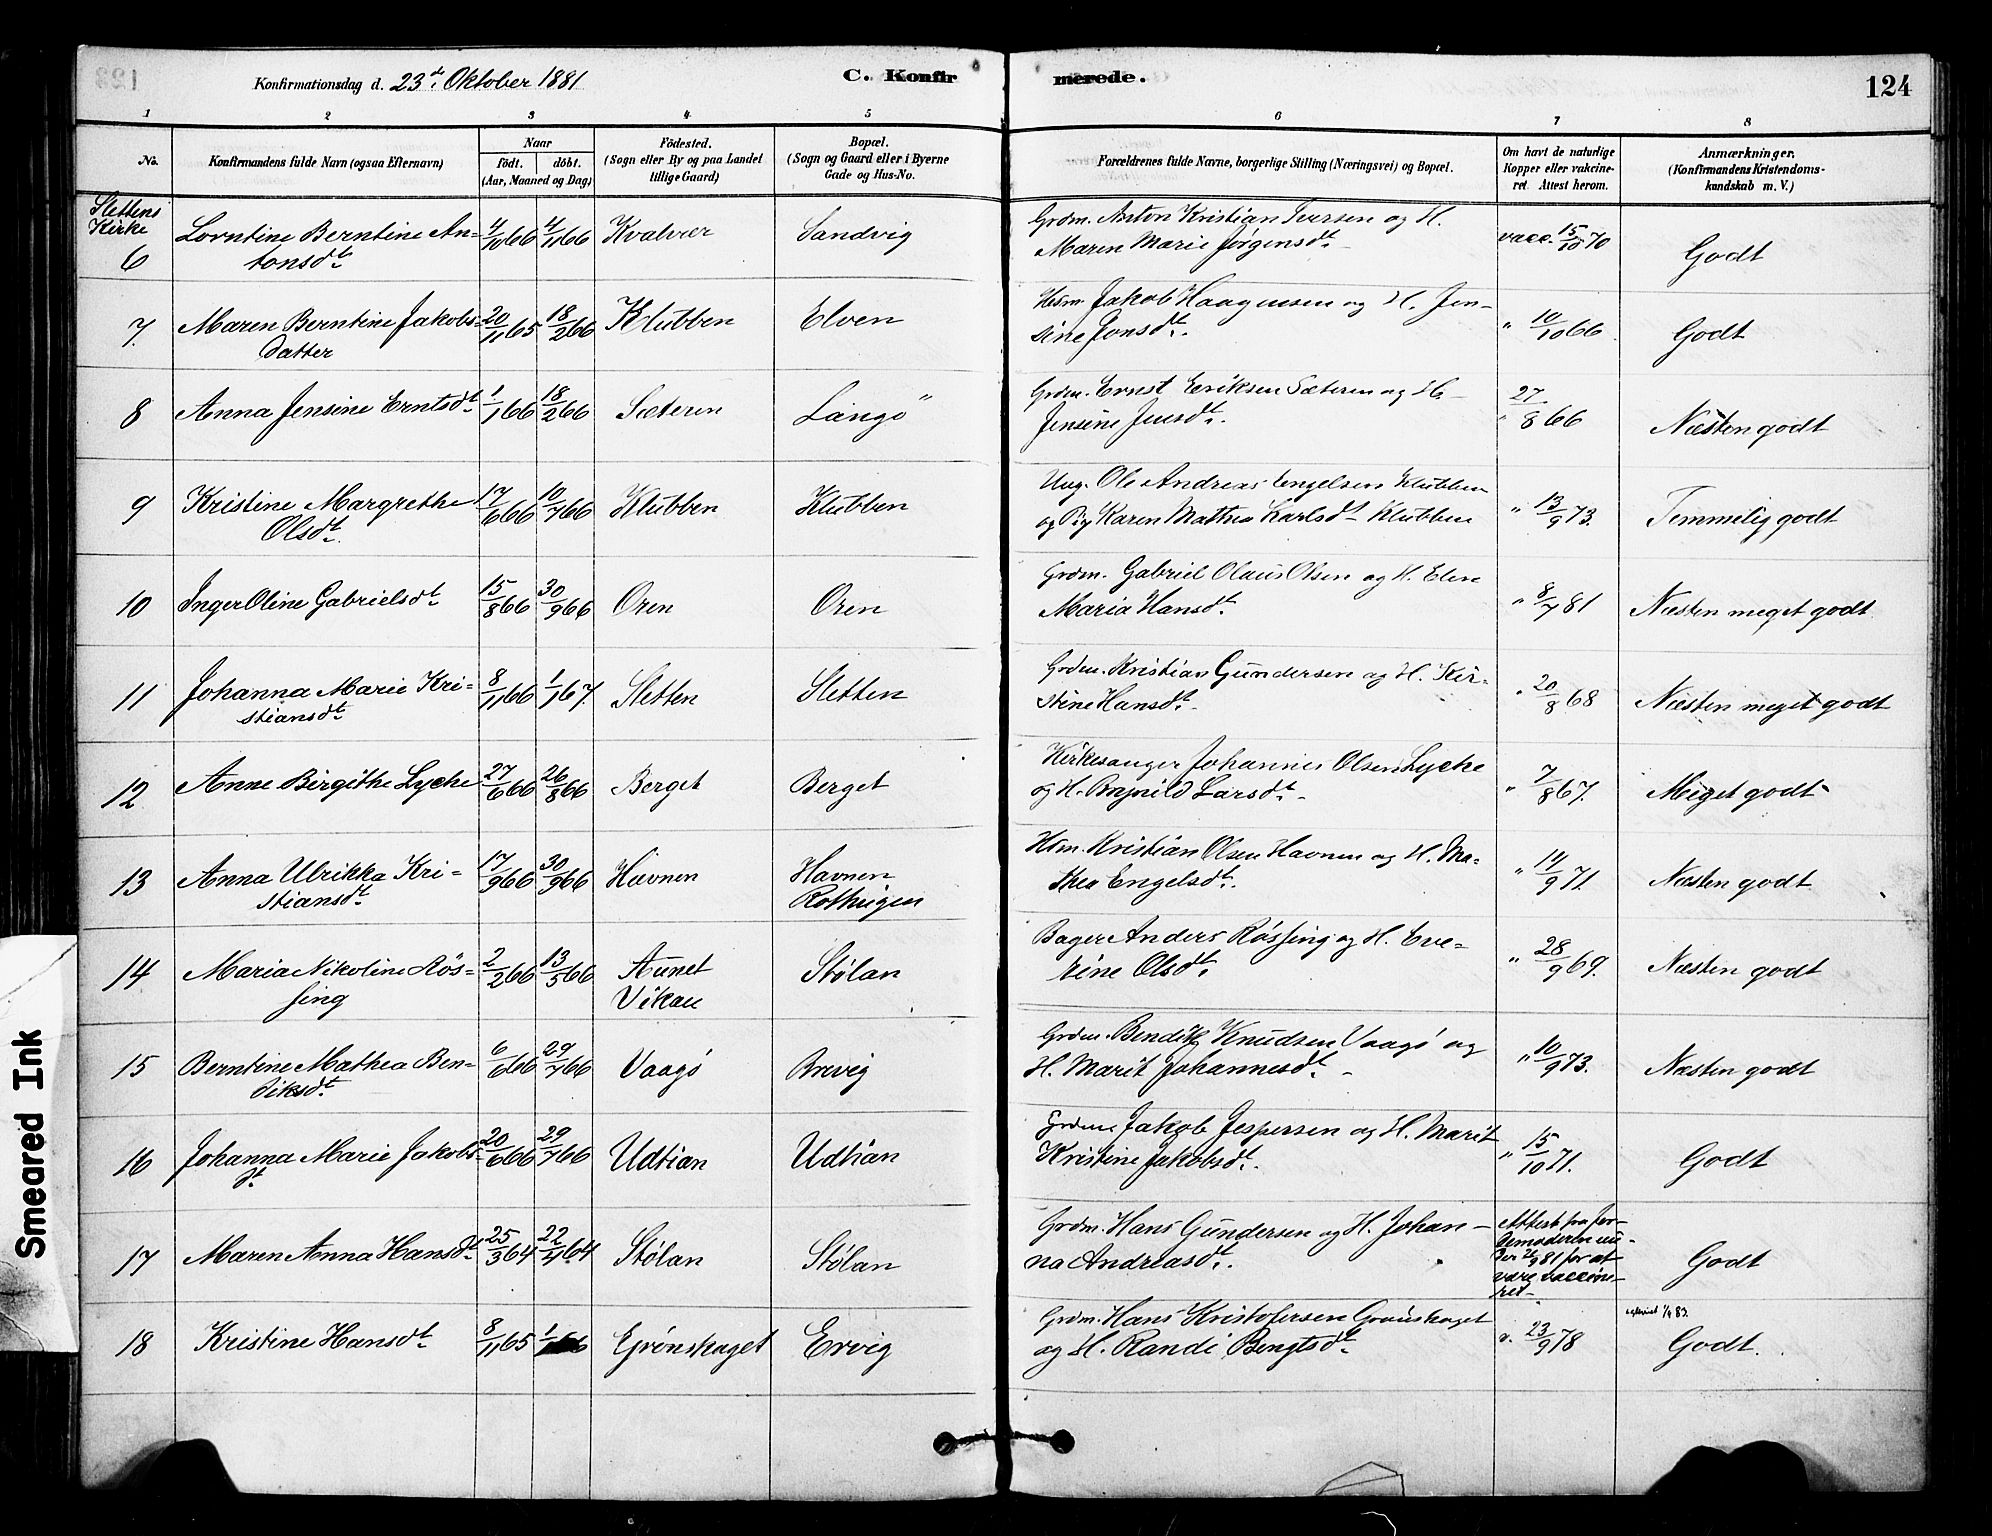 123
Konfirmationsdag d. 23de Oktober 1881
C. Konfir
merede.
124
1 2 3 4 5 6 7 8
No.
Konfirmandens fulde Navn (ogsaa Efternavn)
Naar
født. døbt.
(Aar, Maaned og Dag)
Fødested.
(Sogn eller By og paa Landet
tillige Gaard)
Bopæl.
(Sogn og Gaard eller i Byerne
Gade og Hus-No.
Forældrenes fulde Navne, borgerlige Stilling (Næringsvei) og Bopæl.
Om havt de naturlige
Kopper eller vakcine-
ret. Attest herom.
Anmærkninger.
(Konfirmandens Kristendoms-
kundskab m. V.)
Slettens
Kirke
6 Lorntine Berntine An- 4/10 66 4/11 66 Kvalvær Sandvig
tonsdt.
Grdm. Anton Kristian Iversen og H.
Maren Marie Jørgensdt.
vacc. 15/10 70 Godt
7. Maren Berntine Jakobs- 20/11 65 18/2 66 Klubben Elven
datter
Husm. Jakob Haagensen og H. Jen-
sine Jonsdt.
" 10/10 66 Godt
8 Anna Jensine Erntsdt. 1/1 66 18/2 66 Sæteren Langø
Grdm. Ernst Eriksen Sæteren og H.
Jensine Jensdt.
" 27/8 66 Næsten godt
9 Kristine Margrethe 17/6 66 10/7 66 Klubben Klubben
Olsdt.
Ung. Ole Andreas Engelsen Klubben
og Pig Karen Mathea Karlsdt Klubben
" 13/9 73. Temmelig godt
10 Inger Oline Gabrielsdt. 15/8 66 30/9 66 Oren Oren
Grdm. Gabriel Olaus Olsen og H. Elen
Maria Hansdt.
" 8/7 81 Næsten meget godt
11 Johanna Marie Kri- 8/11 66 1/1 67. Sletten Sletten
stiansdt.
Grdm. Kristian Gundersen og H. Kir-
stine Hansdt.
" 20/8 68 Næsten meget godt
12 Anne Birgithe Lyche 27/6 66 26/8 66 Berget Berget
Kirkesanger Johannes Olsen Lyche
og H. Larsdt.
" 7/8 67. Meget godt
13 Anna Ulrikka Kri- 17/9 66 30/9 66 Havnen Havnen
stiansdt. Rothvigen
Hdm. Kristian Olsen Havnen og H. Ma-
thea Engelsdt.
" 14/9 71. Næsten godt
14 Maria Nikoline Røs- 2/2 66 13/5 66 Aunet Stølan
sing Vikan
Bager Anders Røssing og H. Eve-
line Olsdt.
" 28/9 69. Næsten godt
15 Berntine Mathea Ben- 6/6 66 29/7 66 Vaagø Brevig
diksdt.
Grdm. Bendik Knudsen Vaagø og
H. Marit Johannesdt.
" 10/9 73. Næsten godt
16 Johanna Marie Jakobs- 20/6 66 29/7 66 Udtian Udtian
dt.
Grdm. Jakob Jespersen og H. Marit
Kristine Jakobsdt.
" 15/10 71. Godt
17 Maren Anna Hansdt. 25/3 64 22/4 64 Stølan Stølan
Grdm. Hans Gundersen og H. Johan-
na Andreasdt.
Attest fra Jor-
demoderen un-
der 21/9 81 for at
være vaccine-
ret
Godt
18 Kristine Hansdt. 8/11 65 1/1 66 Grönskaget Ervig
Grdm. Hans Kristofersen Grönskaget
og H. Randi Bengtsdt.
v. 23/9 78 Godt.
Smeared Ink